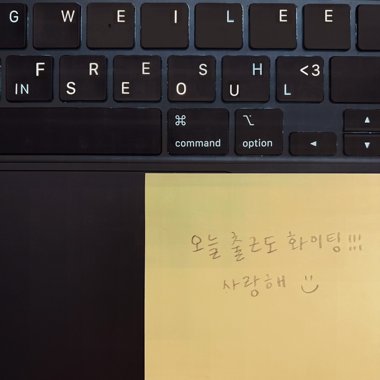 G W E I L E E
F R E S H <3
IN S E O U L
⌘ ⌥
command option ◀ ▲ ▼
오늘 출근도 화이팅!!!
사랑해 :)